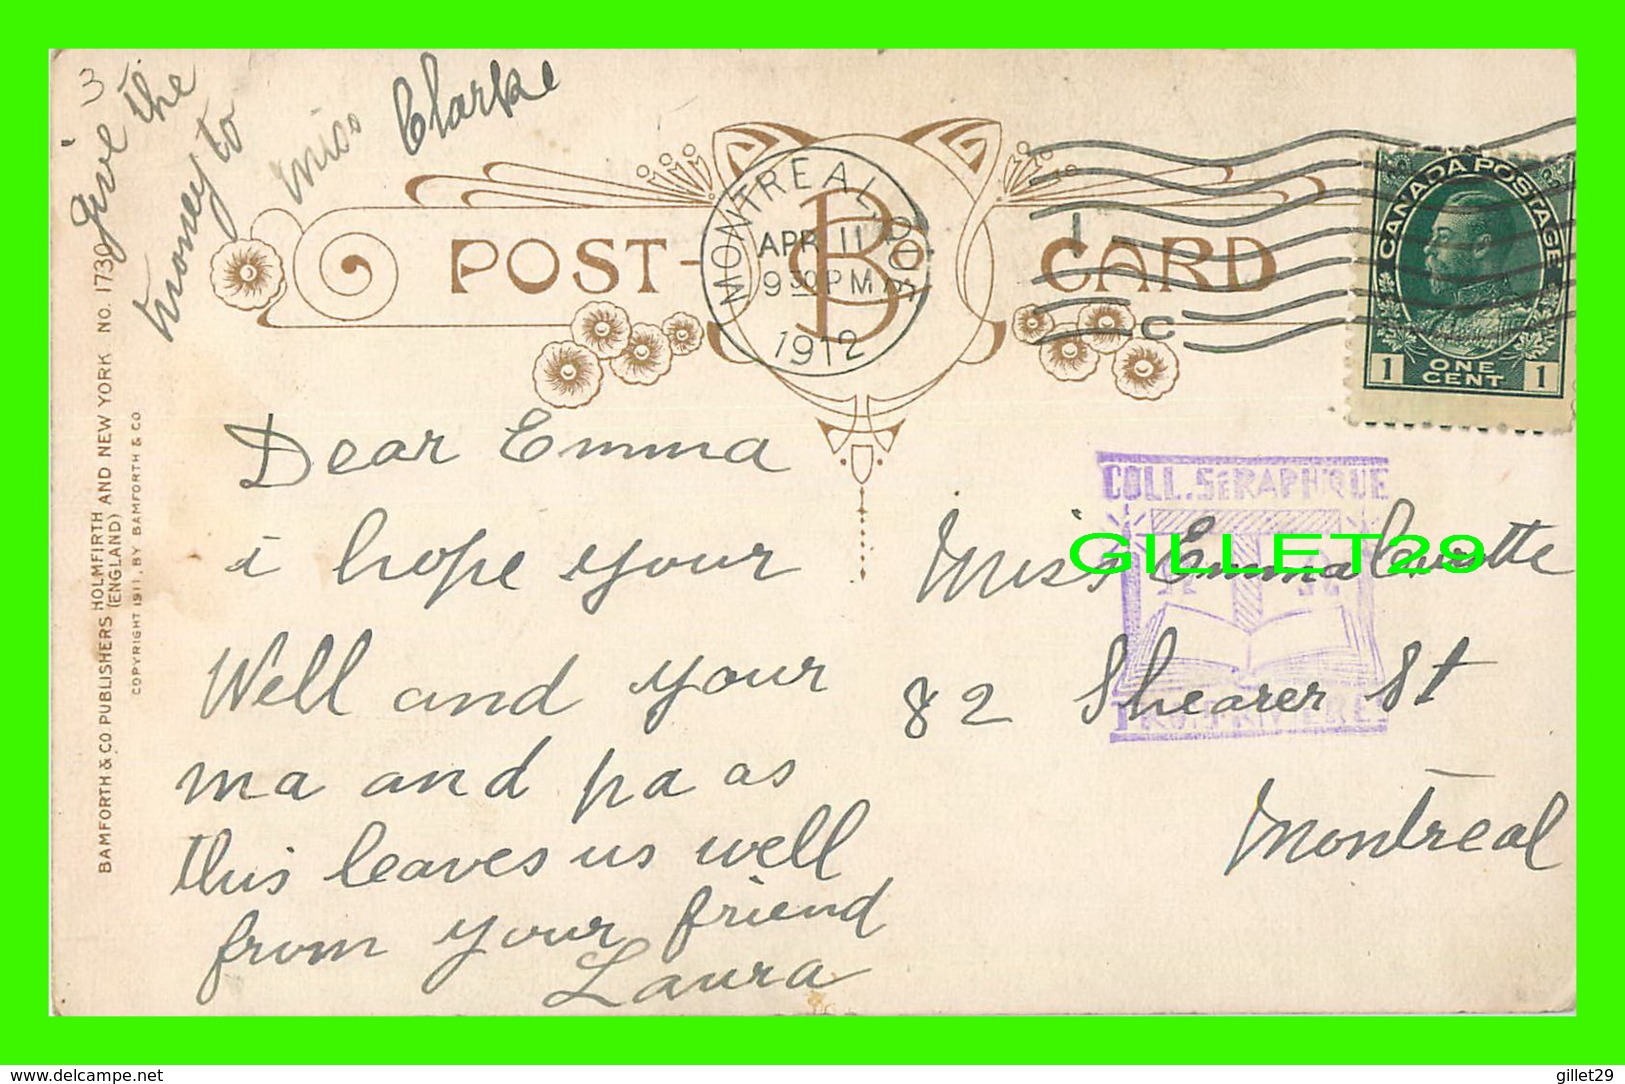 3
Give the
money to
Miss Clarke
POST-CARD
B Co
MONTREAL, QUE
APR 11
9 30 PM
1912
C
CANADA POSTAGE
1 ONE CENT 1
BAMFORTH & CO PUBLISHERS HOLMFIRTH AND NEW YORK NO. 1730
(ENGLAND)
COPYRIGHT 1911, BY BAMFORTH & CO
Dear Emma
i hope your
Well and your
ma and pa as
this leaves us well
from your friend
Laura
COLL. SÉRAPHIQUE
GILLET29
Miss Emma
82 Shearer St
Montreal
delcampe.net
gillet29